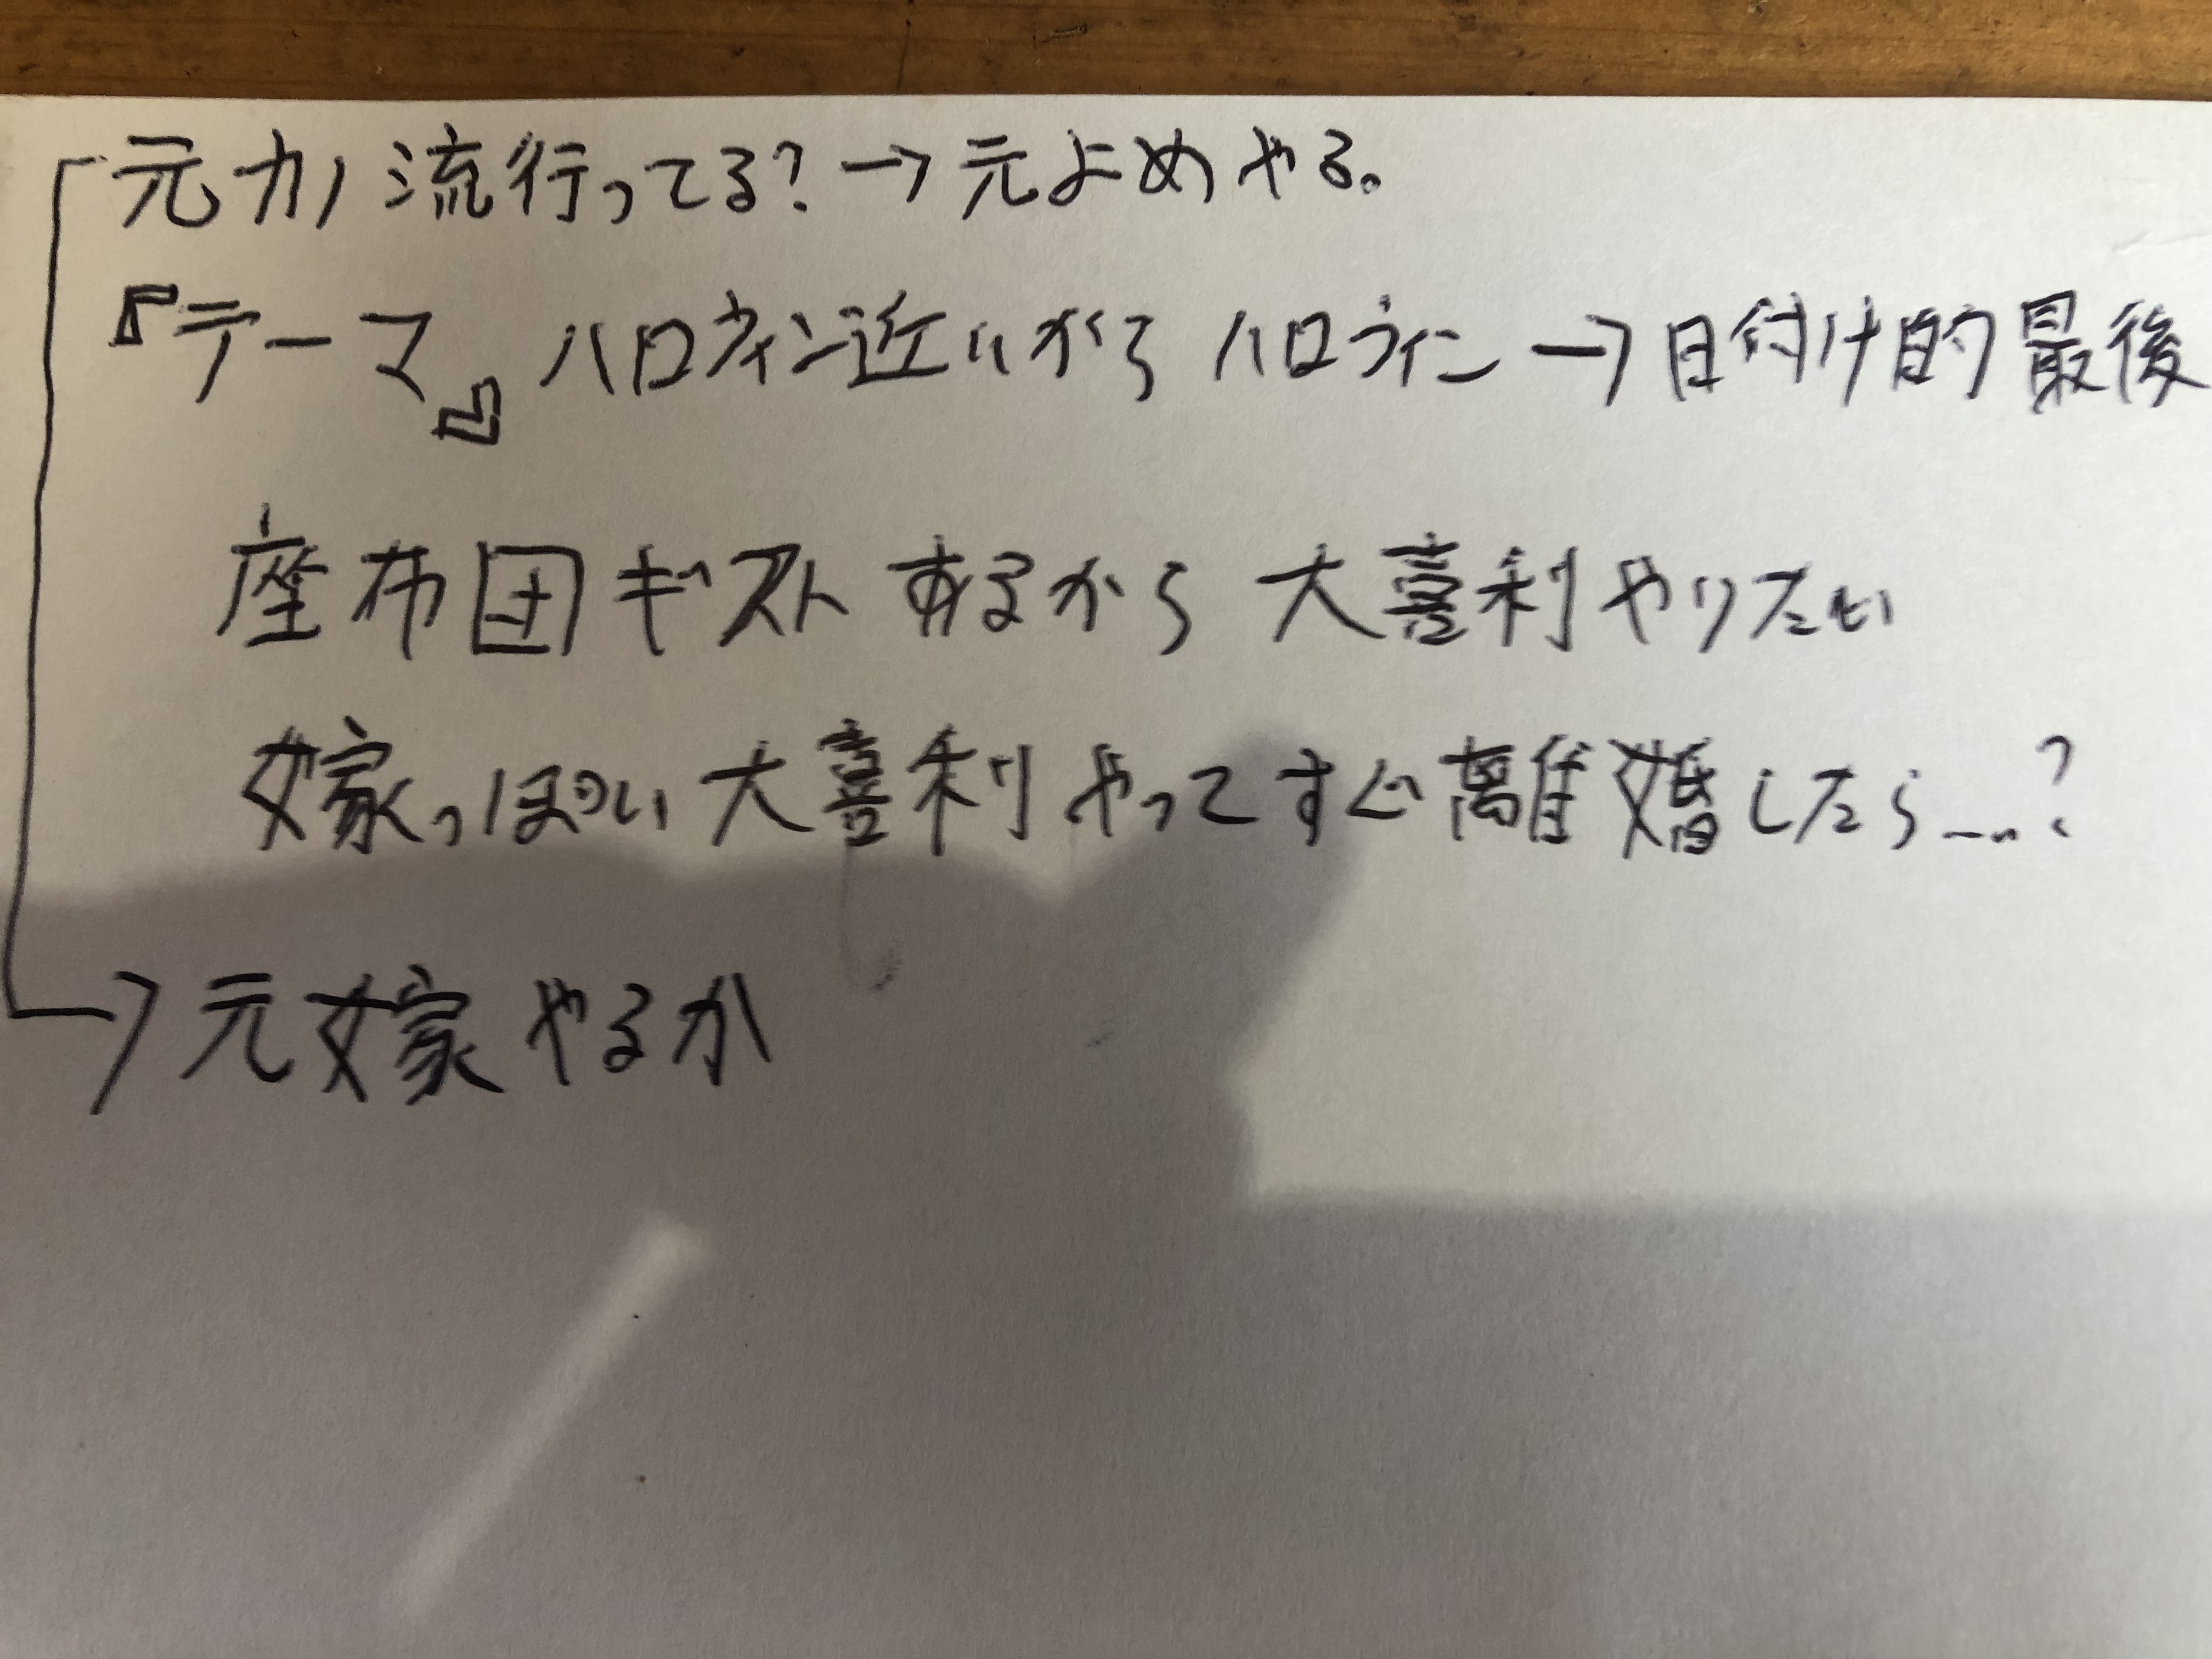 元カノ流行ってる?→元よめやる。
『テーマ』ハロウィン近いからハロウィン→日付け的最後
座布団ギストあるから大喜利やりたい
嫁っぽい大喜利やってすぐ離婚したら…?
→元嫁やるか